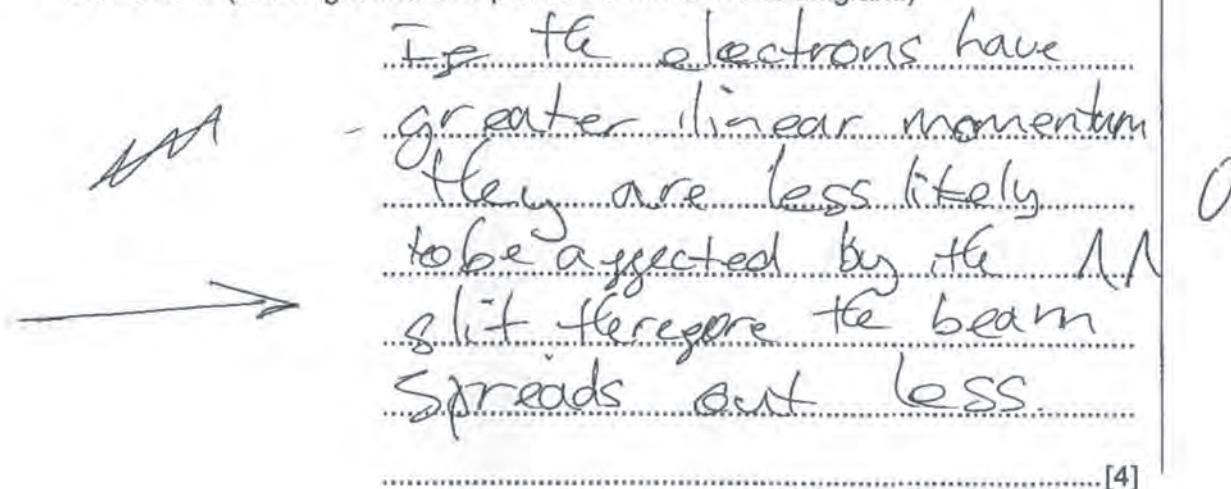 If the electrons have
- greater linear momentum
they are less likely
to be affected by the ΛΛ
slit therefore the beam
spreads out less.
[4]
0